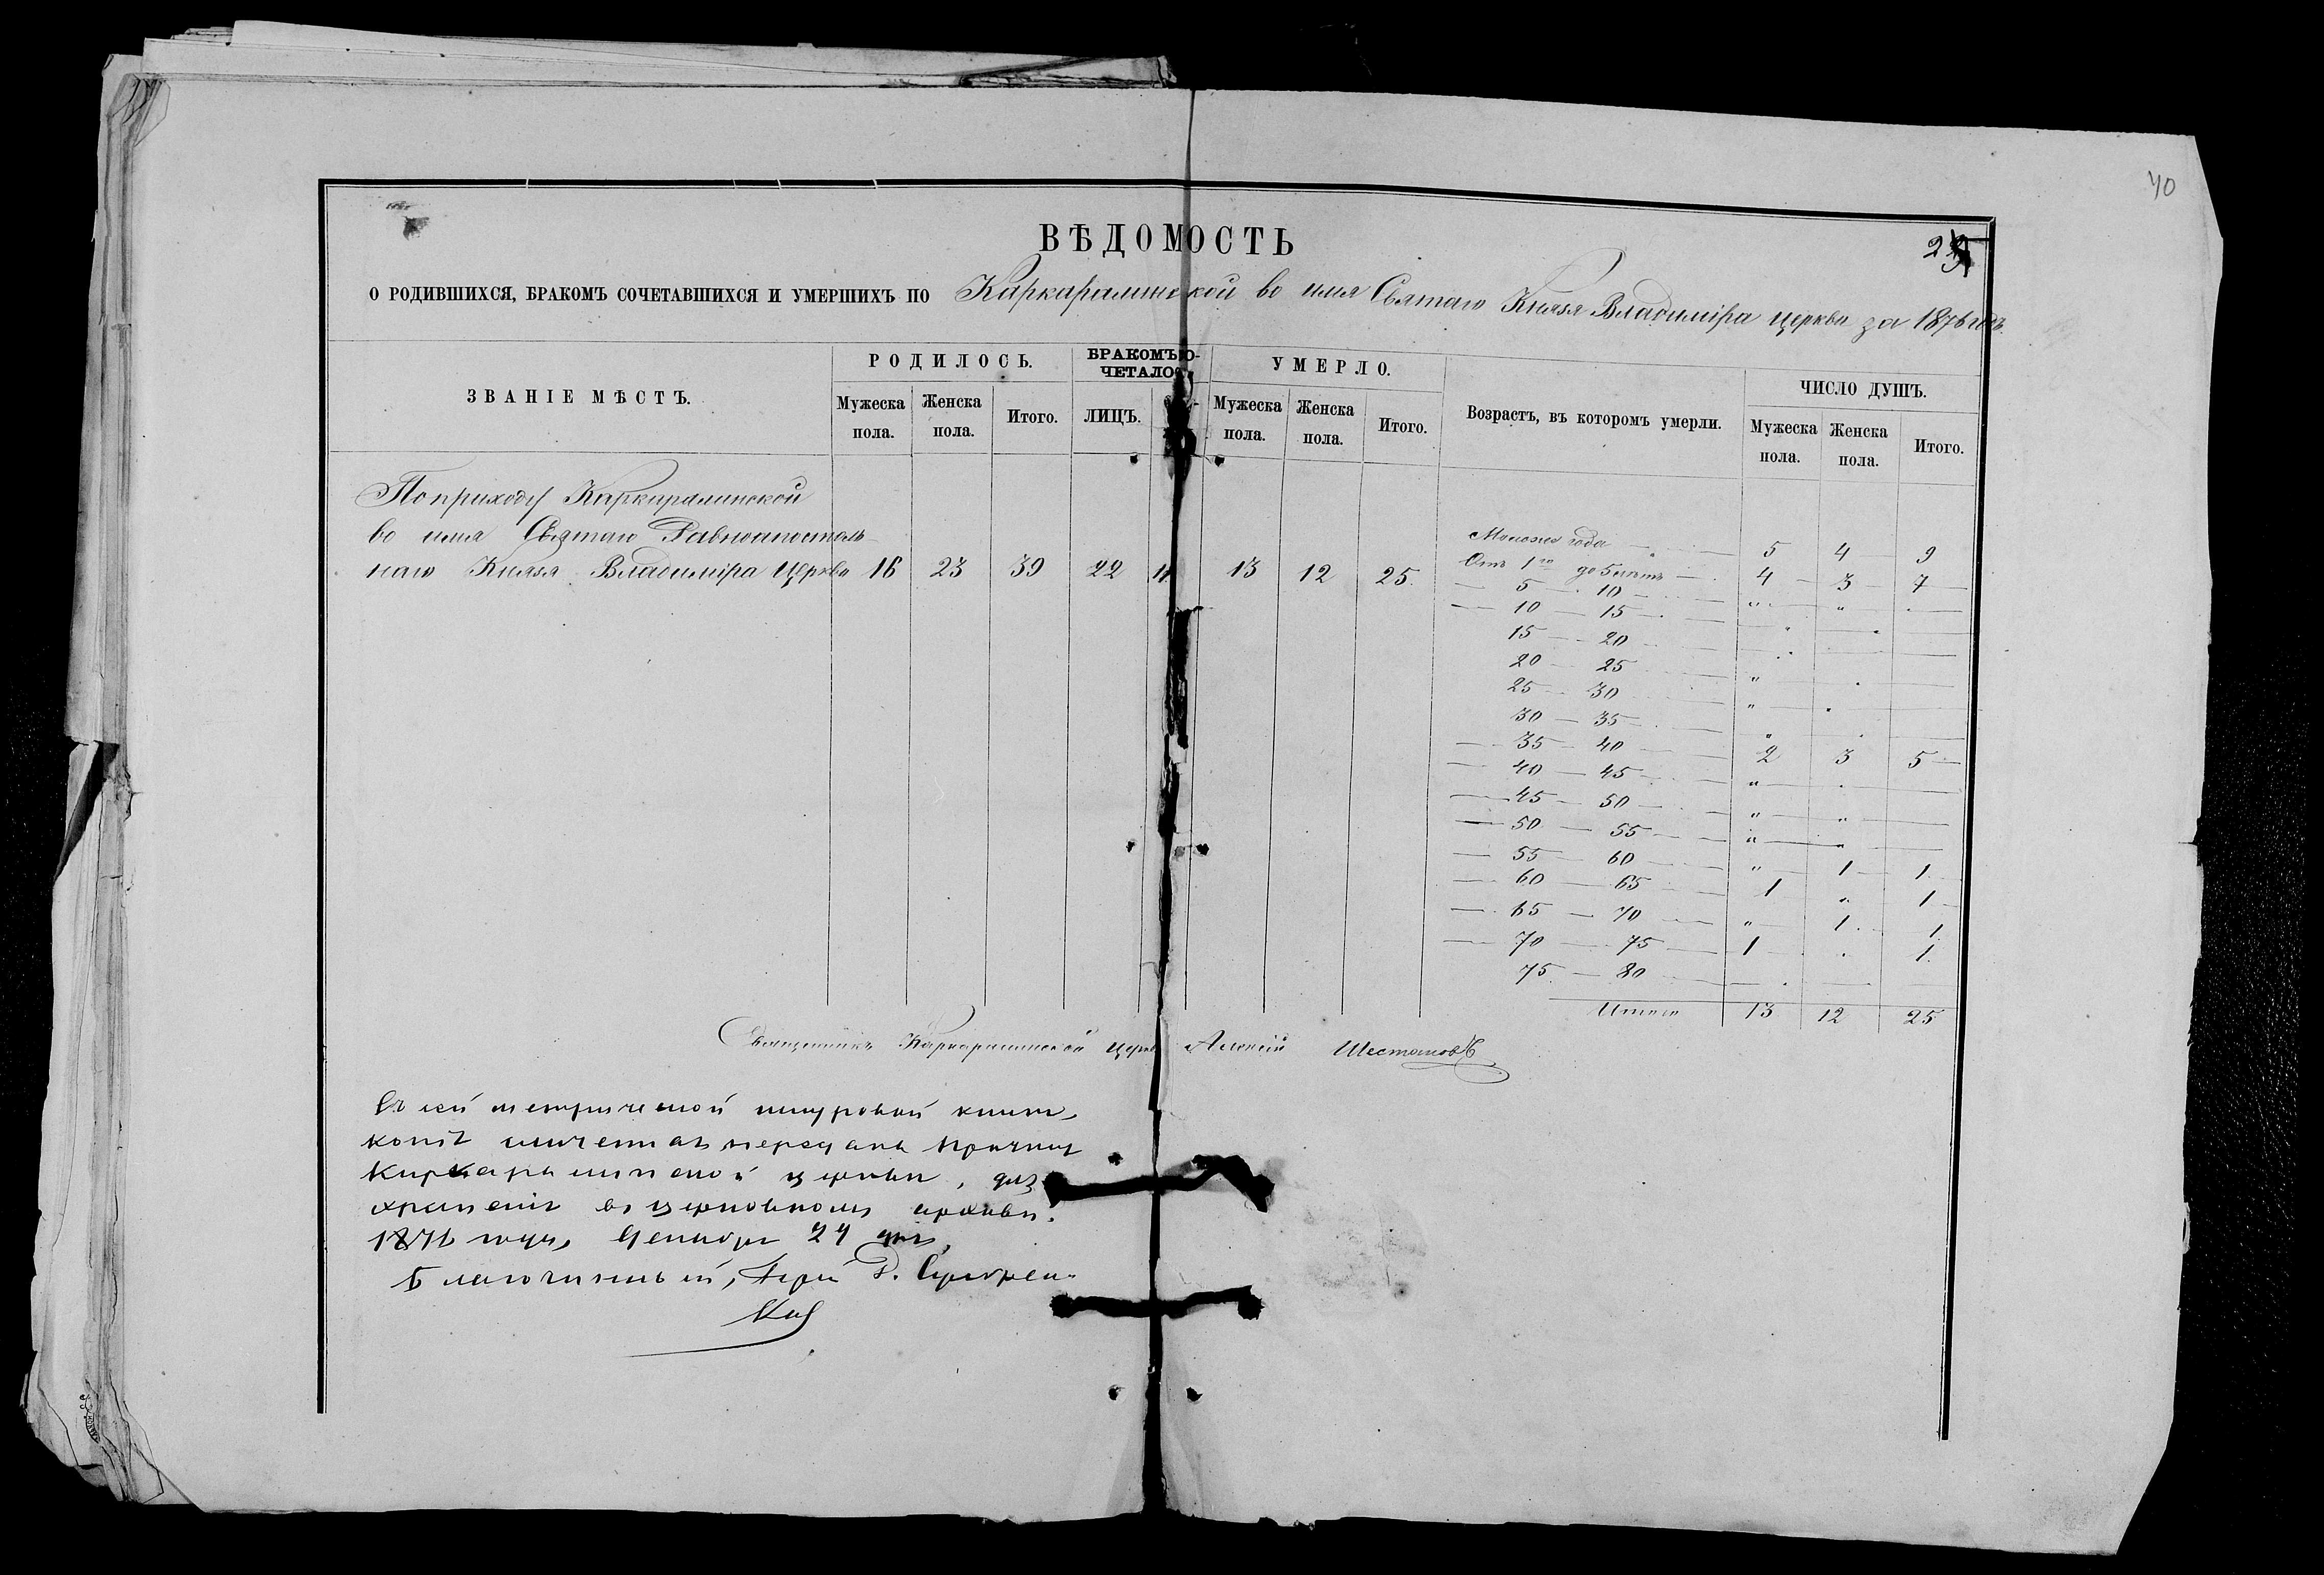 40
ВѢДОМОСТЬ
О РОДИВШИХСЯ, БРАКОМЪ СОЧЕТАВШИХСЯ И УМЕРШИХЪ ПО Каркаралинской во имя Святаго Князя Владиміра церкви за 1876 годъ.
ЗВАНІЕ МѢСТЪ.
РОДИЛОСЬ.
БРАКОМЪ СО-
ЧЕТАЛОСЬ
УМЕРЛО.
Возрастъ, въ которомъ умерли.
ЧИСЛО ДУШЪ.
Мужеска пола. Женска пола. Итого. ЛИЦЪ. Мужеска пола. Женска пола. Итого. Мужеска пола. Женска пола. Итого.
По приходу Каркаралинской
во имя Святаго Равноапостоль-
наго Князя Владиміра Церкви 16 23 39 22 11 13 12 25.
Моложе года 5 4 9
Отъ 1го до 5 лѣтъ 4 3 7
5 — 10 " "
10 — 15
15 — 20
20 — 25 "
25 — 30 "
30 — 35 "
35 — 40 2 3 5
40 — 45 "
45 — 50 " "
50 — 55 " "
55 — 60 " 1 1
60 — 65 1 " 1
65 — 70 " 1 1
70 — 75 1 1
75 — 80
Итого 13 12 25
Священникъ Каркаралинской Церкви Алексій Шестаковъ
Въ сей метрической шнуровой книги,
копія передана Причту
Каркаралинской церкви, для
храненія въ церковномъ архивѣ.
1876 года, Декабря дня
Благочинный, Іерей